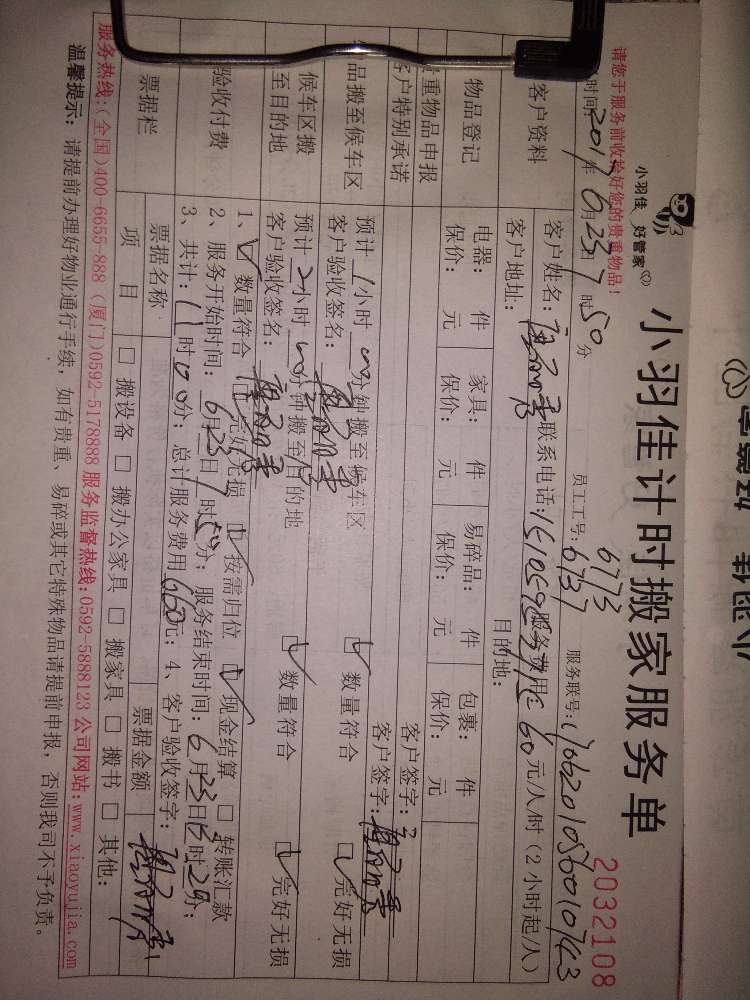 小羽佳 好管家
小羽佳计时搬家服务单
2032108
请您于服务前收拾好您的贵重物品!
员工工号: 6773
6737
服务联号:
时间: 年 6月23日 7时50分
客户资料
客户姓名: 联系电话: 服务费用: 60元/人/时(2小时起/人)
客户地址: 目的地:
物品登记
电器: 件 家具: 件 易碎品: 件 包裹: 件
保价: 元 保价: 元 保价: 元 保价: 元
贵重物品申报 客户签字:
客户特别承诺 客户签字:
品搬至候车区
预计 1小时 00分钟搬至候车区
客户验收签名: 数量符合 完好无损
候车区搬
至目的地
预计 2小时 00分钟搬至目的地
客户验收签名: 数量符合 完好无损
验收付费
1、 数量符合 完好无损 按需归位 现金结算 转账汇款
2、服务开始时间: 6月23日7时50分; 服务结束时间: 6月23日 时 分;
3、共计: 11时00分; 总计服务费用 660元; 4、客户验收签字:
票据栏
票据名称 票据金额
项 目 搬设备 搬办公家具 搬家具 搬书 其他:
服务热线:(全国)400-6655-888 (厦门)0592-5178888 服务监督热线:0592-5888123 公司网站:www.xiaoyujia.com
温馨提示: 请提前办理好物业通行手续, 如有贵重、易碎或其它特殊物品请提前申报, 否则我司不予负责。